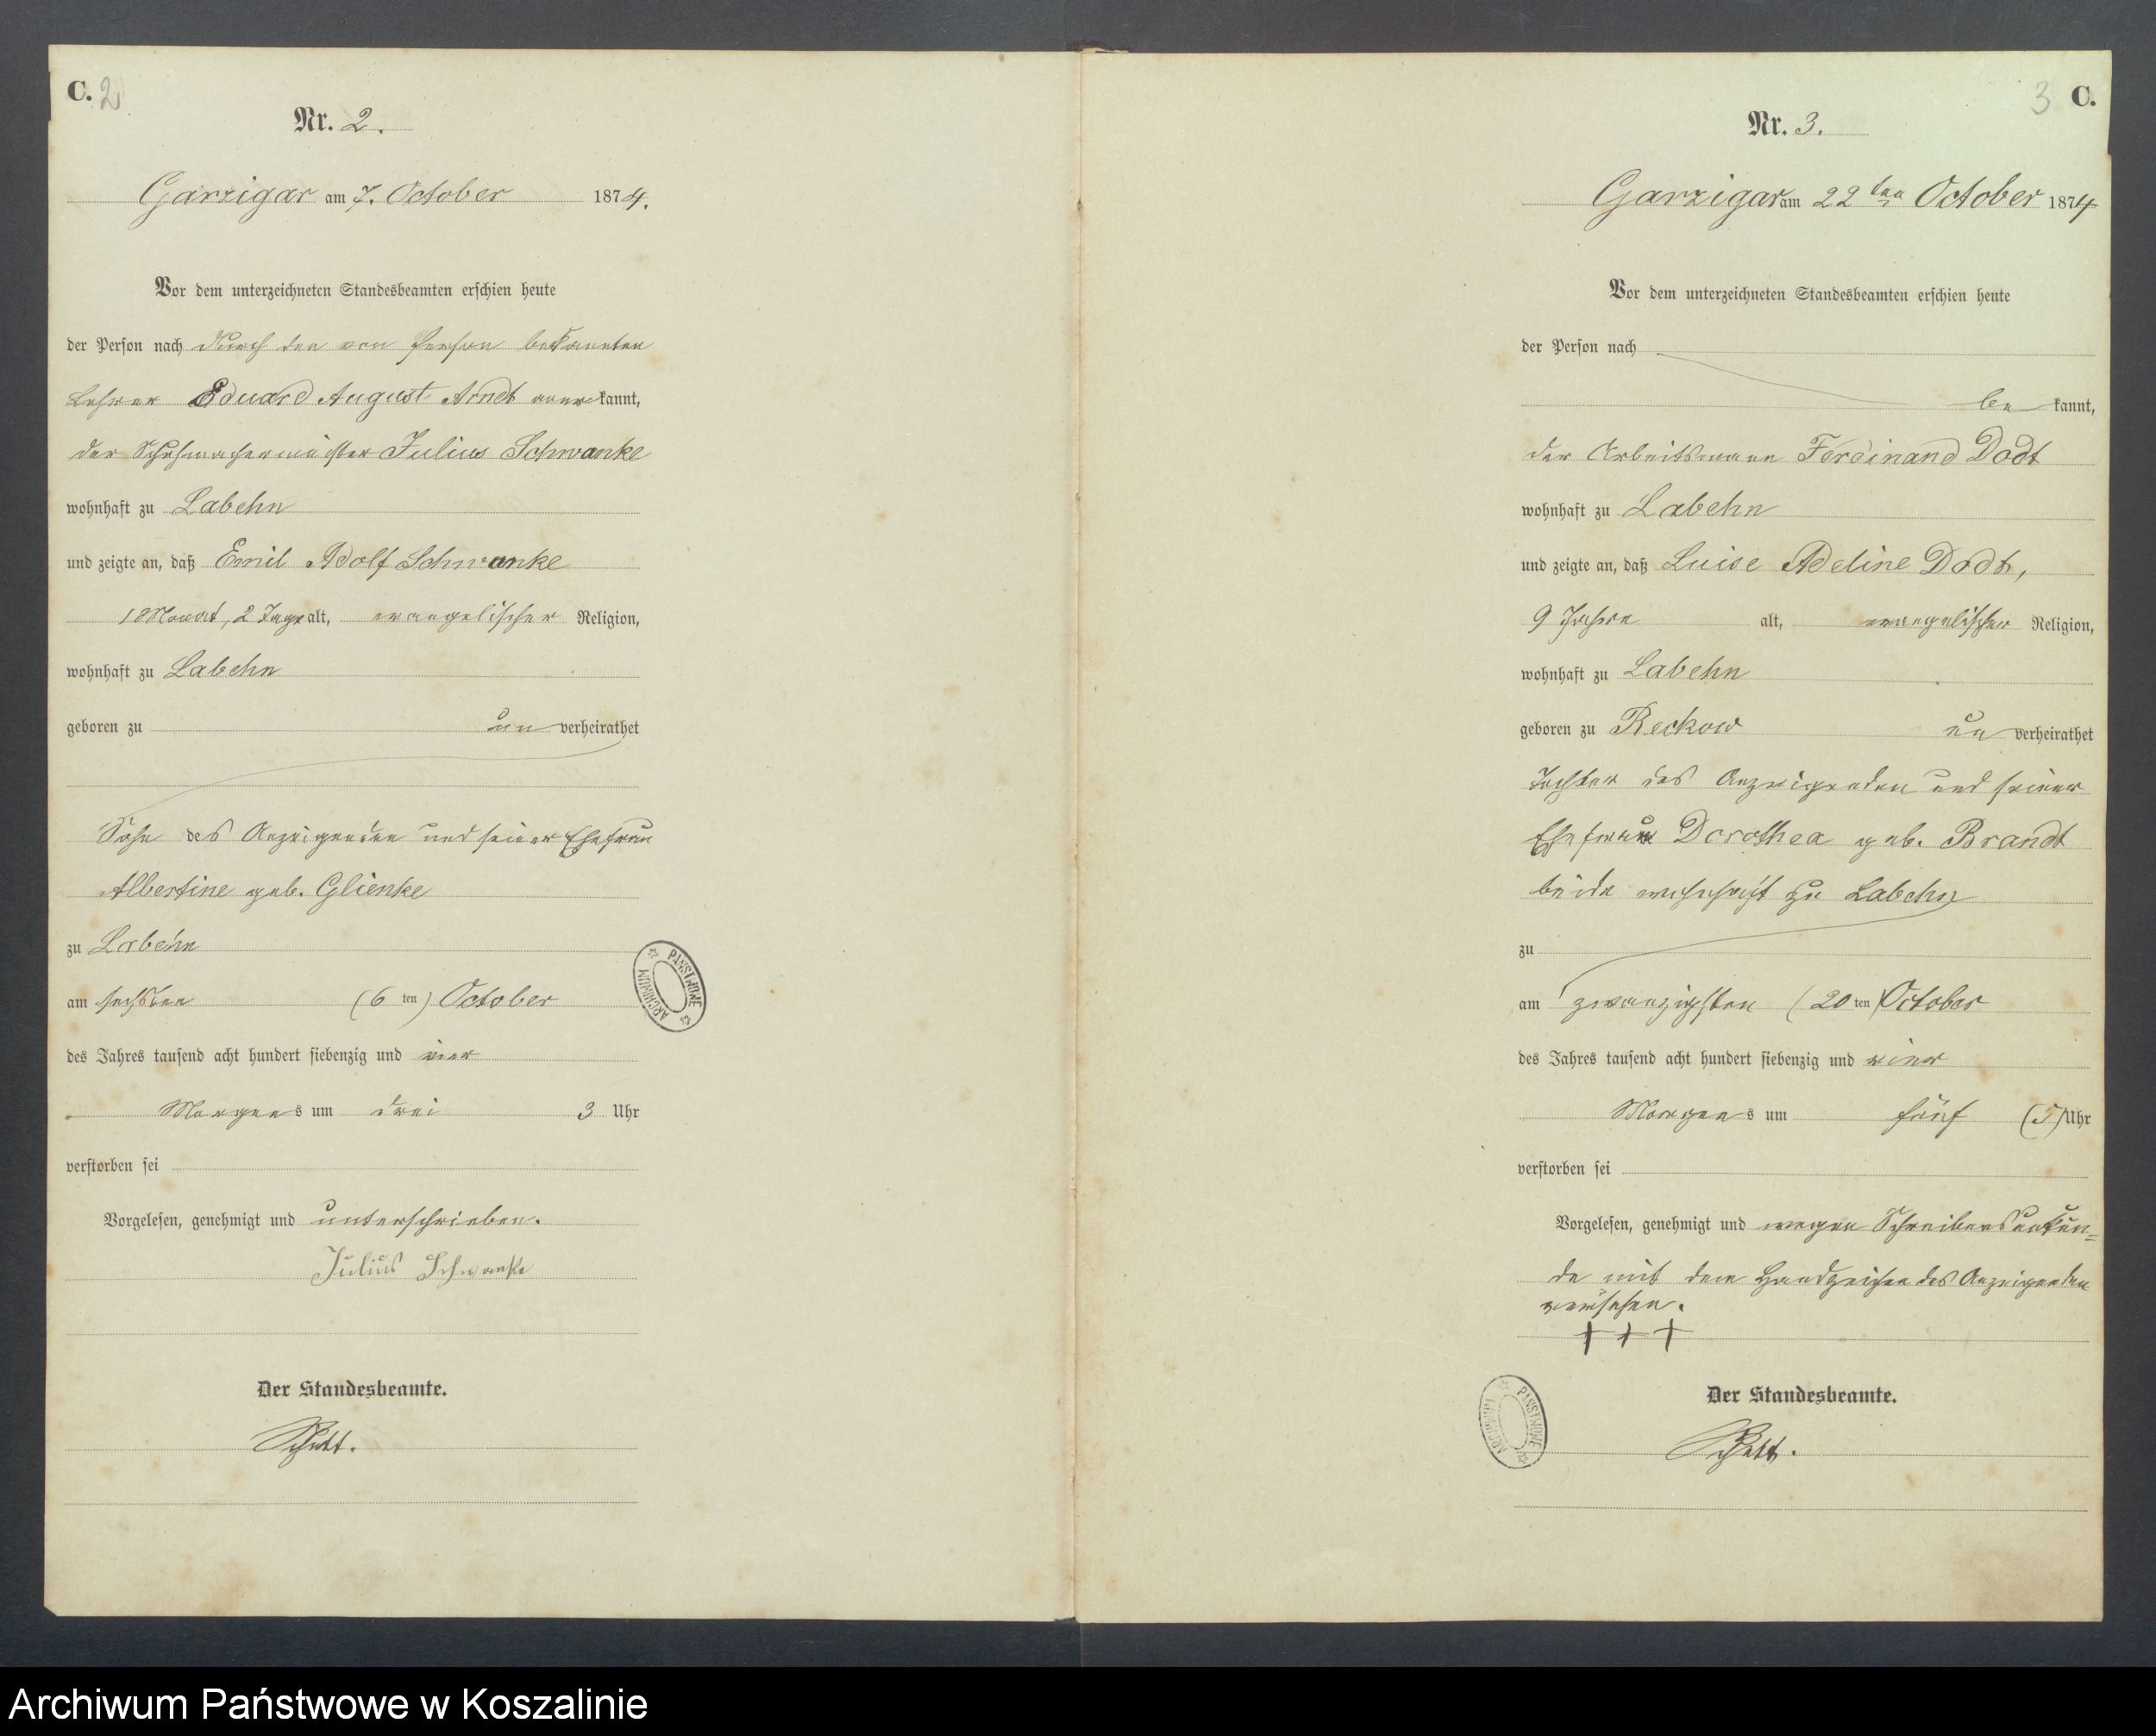 C. 2
Nr. 2.
Garzigar am 7. October 1874.
Vor dem unterzeichneten Standesbeamten erschien heute
der Person nach durch den von Person bekannten
Lehrer Eduard August Arndt anerkannt,
der Schuhmachermeister Julius Schwanke
wohnhaft zu Labehn
und zeigte an, daß Emil Adolf Schwanke
1 Monat, 2 Tage alt, evangelischer Religion,
wohnhaft zu Labehn
geboren zu un verheirathet
Sohn des Anzeigenden und seiner Ehefrau
Albertine geb. Glienke
zu Labehn
am sechsten (6 ten) October
des Jahres tausend acht hundert siebenzig und vier
Morgens um drei 3 Uhr
verstorben sei
Vorgelesen, genehmigt und unterschrieben.
Julius Schwanke
Der Standesbeamte.
ARCHIWUM PAŃSTWOWE
3 C.
Nr. 3.
Garzigar am 22ten October 1874
Vor dem unterzeichneten Standesbeamten erschien heute
der Person nach
be kannt,
der Arbeitsmann Ferdinand Dodt
wohnhaft zu Labehn
und zeigte an, daß Luise Adeline Dodt,
9 Jahre alt, evangelischer Religion,
wohnhaft zu Labehn
geboren zu Reckow un verheirathet
Tochter des Anzeigenden und seiner
Ehefrau Dorothea geb. Brandt
beide wohnhaft zu Labehn
zu
am zwanzigsten (20 ten) October
des Jahres tausend acht hundert siebenzig und vier
Morgens um fünf (5) Uhr
verstorben sei
Vorgelesen, genehmigt und wegen Schreibensunkun=
de mit dem Handzeichen des Anzeigenden
versehen.
+ + +
Der Standesbeamte.
ARCHIWUM PAŃSTWOWE
Archiwum Państwowe w Koszalinie